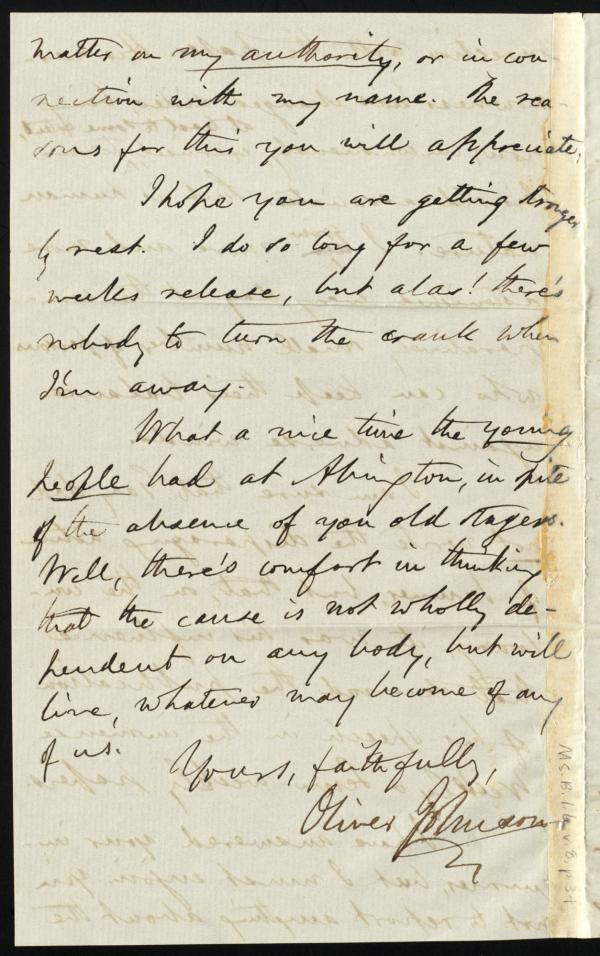 matter on my authority, or in con-
nection with my name. The rea-
sons for this you will appreciate.
I hope you are getting stronger
by rest. I do so long for a few
weeks release, but alas! there's
nobody to turn the crank when
I'm away.
What a nice time the young
people had at Abington, in spite
of the absence of you old stagers.
Well, there's comfort in thinking
that the cause is not wholly de-
pendent on any body, but will
live, whatever may become of any
of us.
Yours, faithfully,
Oliver Johnson